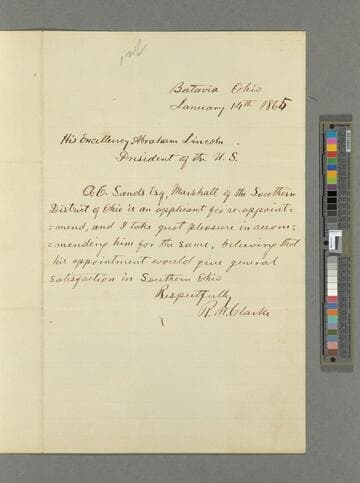 Batavia Ohio
January 14th 1865
His Excellency Abraham Lincoln.
President of the U.S.
A.C. Sands Esq, Marshall of the Southern
District of Ohio is an applicant for re-appoint-
=mend, and I take great pleasure in recom=
=mending him for the same, believing that
his appointment would give general
satisfaction in Southern Ohio
Respectfully
R. W. Clarke